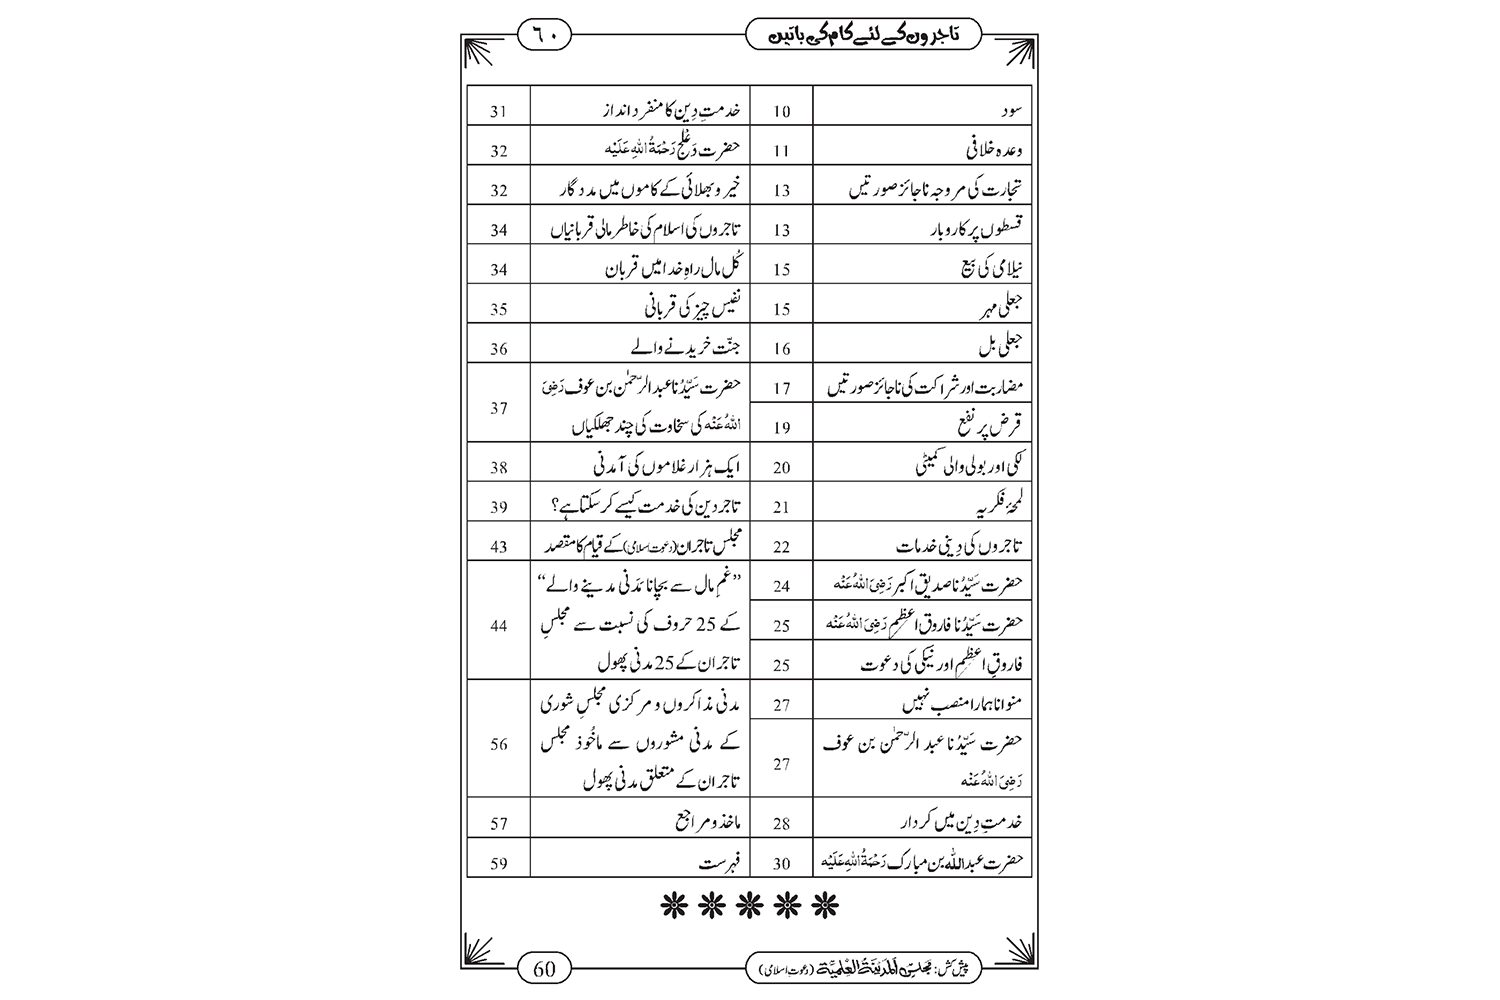 تاجروں کے لئے کام کی باتیں
٦٠
سود 10
وعدہ خلافی 11
تجارت کی مروجہ ناجائز صورتیں 13
قسطوں پر کاروبار 13
نیلامی کی بیع 15
جعلی مہر 15
جعلی بل 16
مضاربت اور شراکت کی ناجائز صورتیں 17
قرض پر نفع 19
لکی اور بولی والی کمیٹی 20
لمحۂ فکریہ 21
تاجروں کی دِینی خدمات 22
حضرت سَیِّدُنا صدیق اکبر رَضِیَ اللہُ عَنْہ 24
حضرت سَیِّدُنا فاروق اعظم رَضِیَ اللہُ عَنْہ 25
فاروقِ اعظم اور نیکی کی دعوت 25
منوانا ہمارا منصب نہیں 27
حضرت سَیِّدُنا عبد الرّحمٰن بن عوف
رَضِیَ اللہُ عَنْہ 27
خدمتِ دِین میں کردار 28
حضرت عبد اللہ بن مبارک رَحْمَۃُ اللہِ عَلَیْہ 30
خدمتِ دِین کا منفرد انداز 31
حضرت دَعْلَج رَحْمَۃُ اللہِ عَلَیْہ 32
خیر و بھلائی کے کاموں میں مددگار 32
تاجروں کی اسلام کی خاطر مالی قربانیاں 34
کُل مال راہِ خدا میں قربان 34
نفیس چیز کی قربانی 35
جنّت خریدنے والے 36
حضرت سَیِّدُنا عبد الرّحمٰن بن عوف رَضِیَ
اللہُ عَنْہ کی سخاوت کی چند جھلکیاں 37
ایک ہزار غلاموں کی آمدنی 38
تاجر دین کی خدمت کیسے کر سکتا ہے؟ 39
مجلس تاجران (دعوتِ اسلامی) کے قیام کا مقصد 43
”غمِ مال سے بچانا مَدَنی مدینے والے“
کے 25 حروف کی نسبت سے مجلسِ
تاجران کے 25 مدنی پھول 44
مدنی مذاکروں و مرکزی مجلسِ شوریٰ
کے مدنی مشوروں سے ماخُوذ مجلس
تاجران کے متعلق مدنی پھول 56
ماخذ و مراجع 57
فہرست 59
پیش کش: مجلس اَلْمَدِیْنَۃُ الْعِلْمِیَّۃ (دعوتِ اسلامی)
60